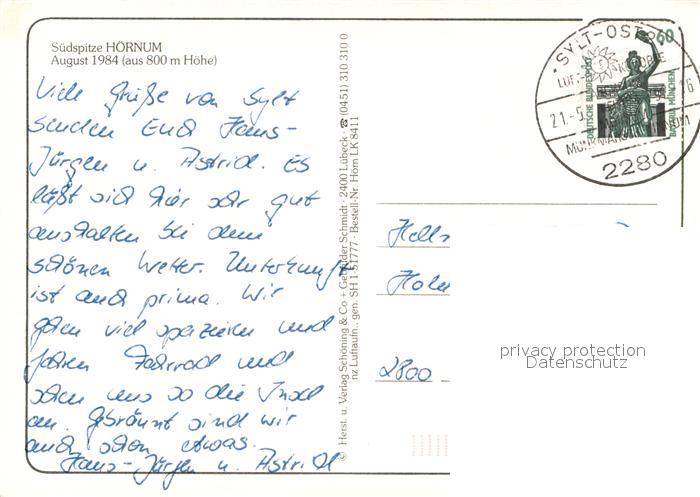 Südspitze HÖRNUM
August 1984 (aus 800 m Höhe)
Viele Grüße von Sylt
senden Euch Hans-
Jürgen u. Astrid. Es
läßt sich hier sehr gut
aushalten bei dem
schönen Wetter. Unterkunft
ist auch prima. Wir
gehen viel spazieren und
fahren Fahrrad und
sehen uns so die Insel
an. Gebräunt sind wir
auch schon etwas.
Hans-Jürgen u. Astrid
© Herst. u. Verlag Schöning & Co + Gebrüder Schmidt · 2400 Lübeck · ☎ (0451) 310 310 0
nz Luftaufn., gen. SH 1-51777 · Bestell-Nr. Hörn LK 8411
SYLT-OST
21.-5.
16
2280
60
DEUTSCHE BUNDESPOST
BAVARIA MÜNCHEN
2800
privacy protection
Datenschutz